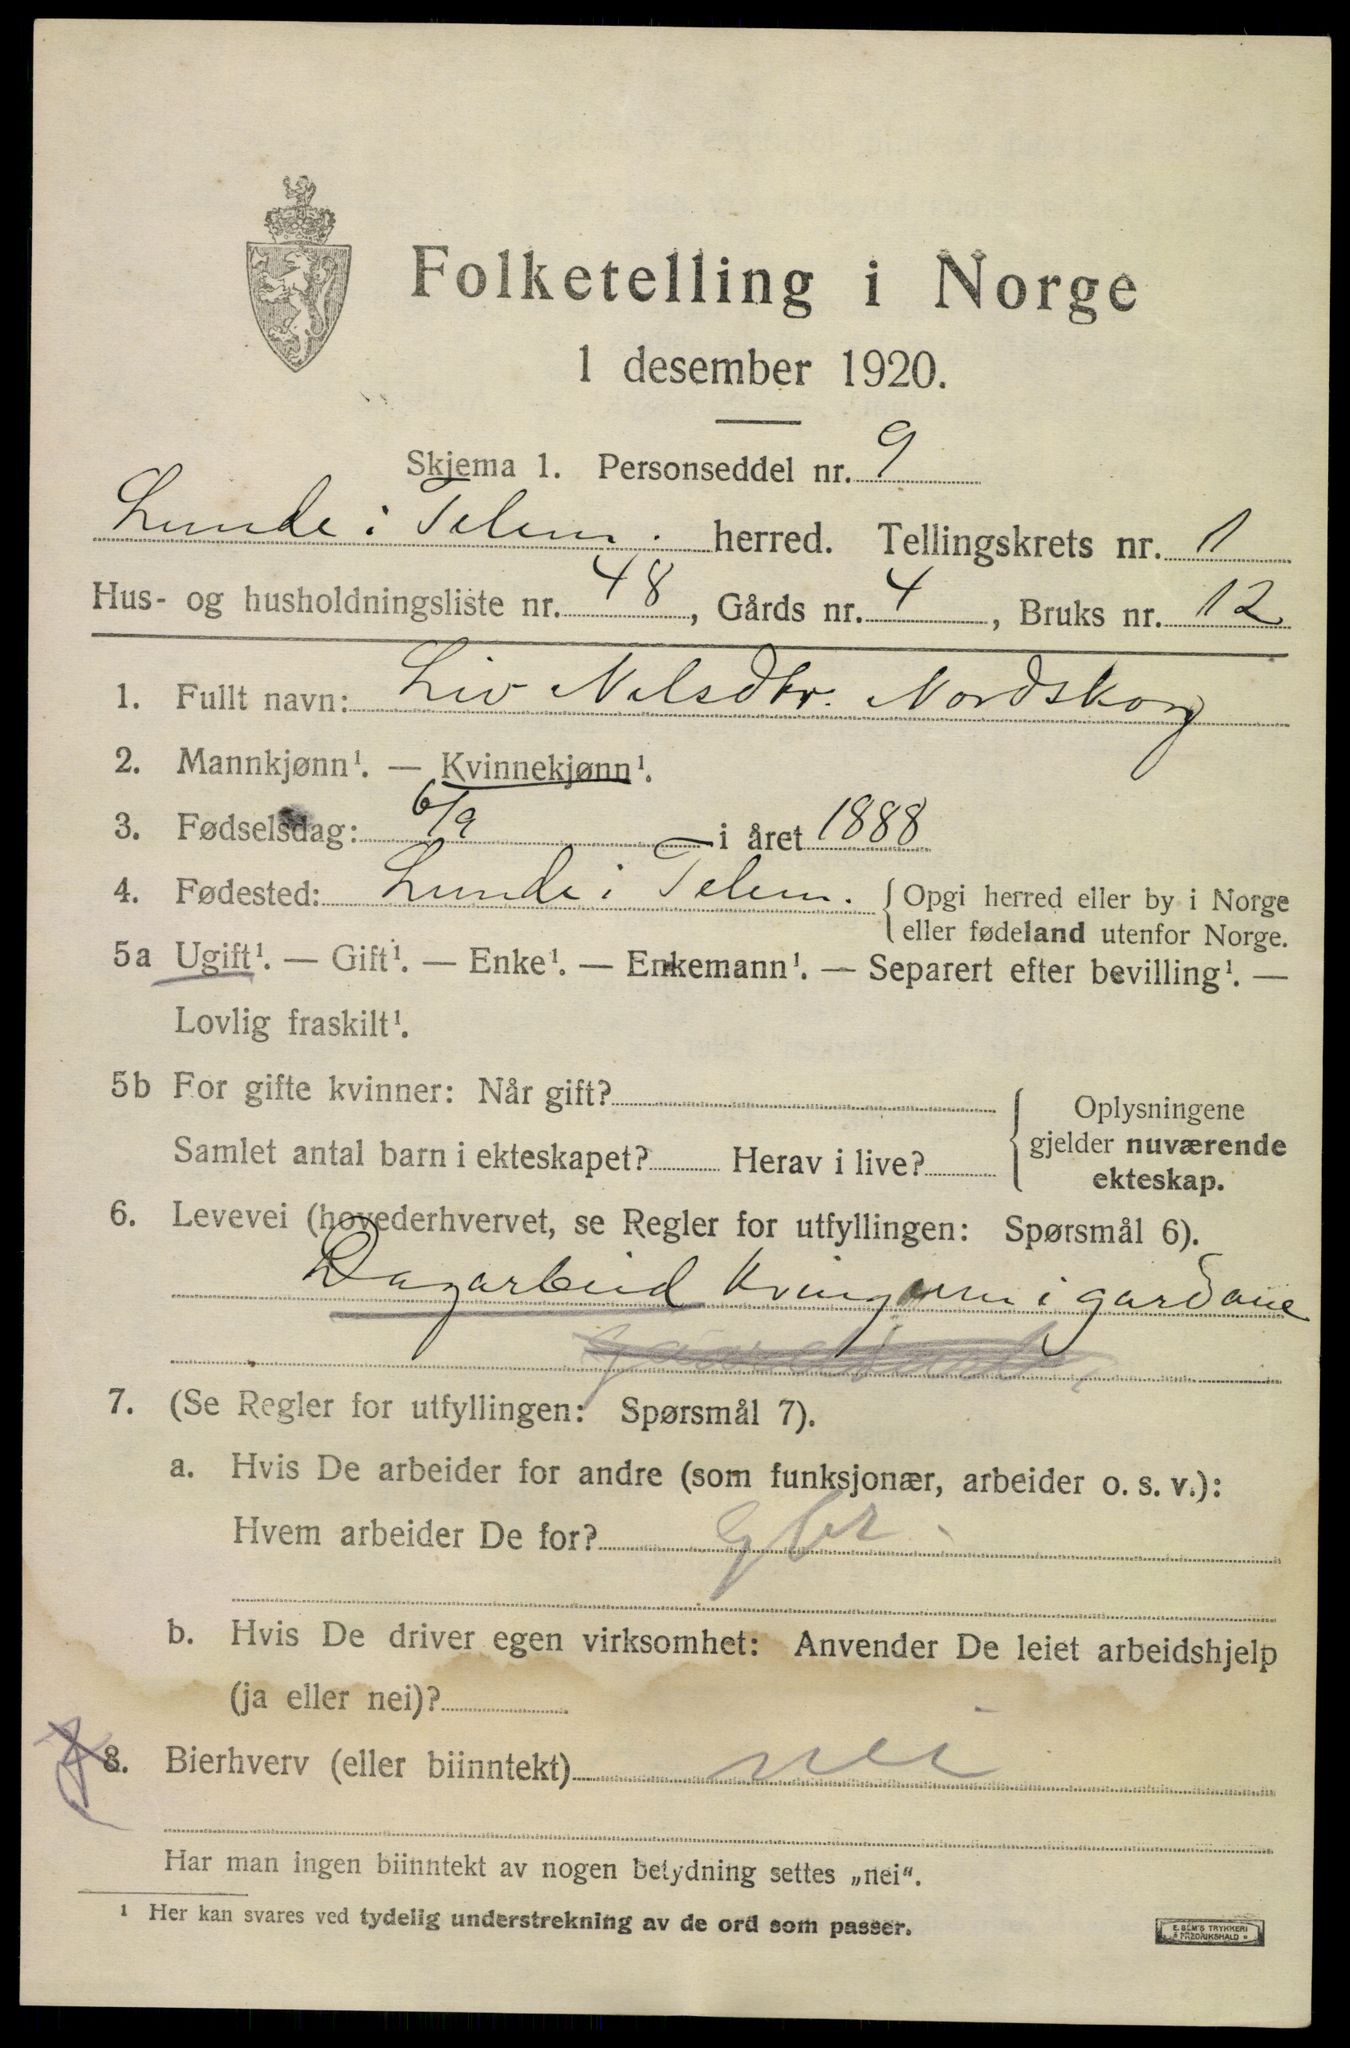 Folketelling i Norge
1 desember 1920.
Skjema 1. Personseddel nr. 9
Lunde i Telem. herred. Tellingskrets nr. 1
Hus- og husholdningsliste nr. 48, Gårds nr. 4, Bruks nr. 12
1. Fullt navn: Liv Nilsdtr. Nordskog
2. Mannkjønn¹. — Kvinnekjønn¹.
3. Fødselsdag: 6/9 i året 1888
4. Fødested: Lunde i Telem. { Opgi herred eller by i Norge
eller fødeland utenfor Norge.
5a Ugift¹. — Gift¹. — Enke¹. — Enkemann¹. — Separert efter bevilling¹. —
Lovlig fraskilt¹.
5b For gifte kvinner: Når gift? { Oplysningene
gjelder nuværende
ekteskap.
Samlet antal barn i ekteskapet? Herav i live?
6. Levevei (hovederhvervet, se Regler for utfyllingen: Spørsmål 6).
Dagarbeid kringom i gardane
7. (Se Regler for utfyllingen: Spørsmål 7).
a. Hvis De arbeider for andre (som funksjonær, arbeider o. s. v.):
Hvem arbeider De for? Gbr
b. Hvis De driver egen virksomhet: Anvender De leiet arbeidshjelp
(ja eller nei)?
8. Bierhverv (eller biinntekt) nei
Har man ingen biinntekt av nogen betydning settes „nei“.
¹ Her kan svares ved tydelig understrekning av de ord som passer.
E. SEM'S TRYKKERI
FREDRIKSHALD